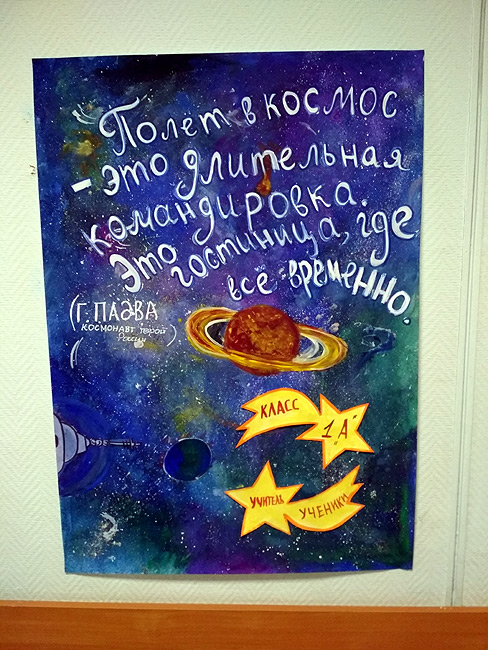 Полет в космос
- это длительная
командировка.
Это гостиница, где
все временно.
(Г. ПАДВА
КОСМОНАВТ герой
России)
КЛАСС
1„А"
УЧИТЕЛЬ
УЧЕНИКИ